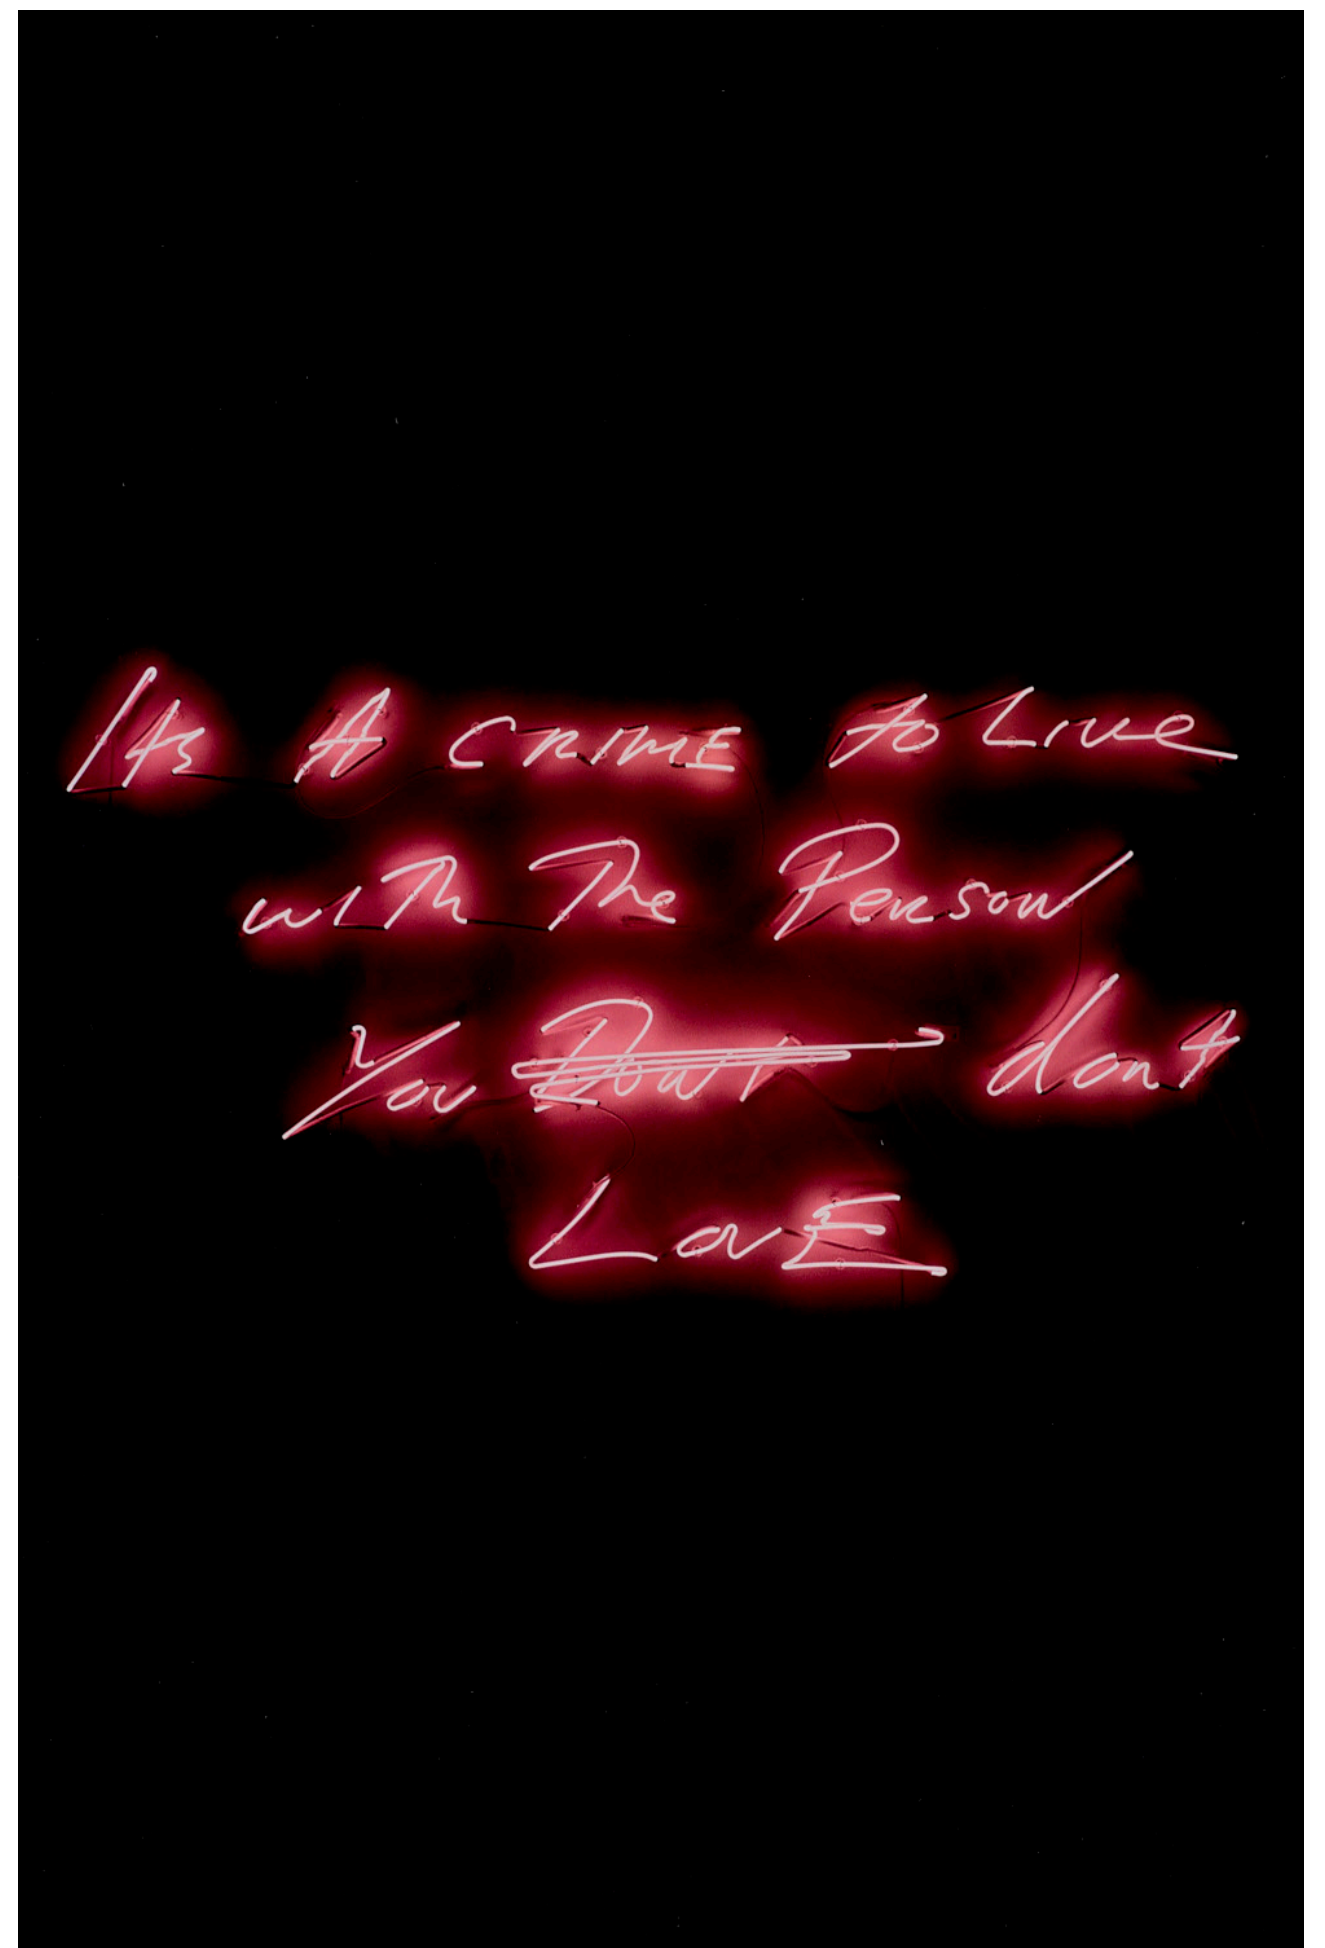 Its A CRIME to Live
with The Person
You Dont dont
LovE